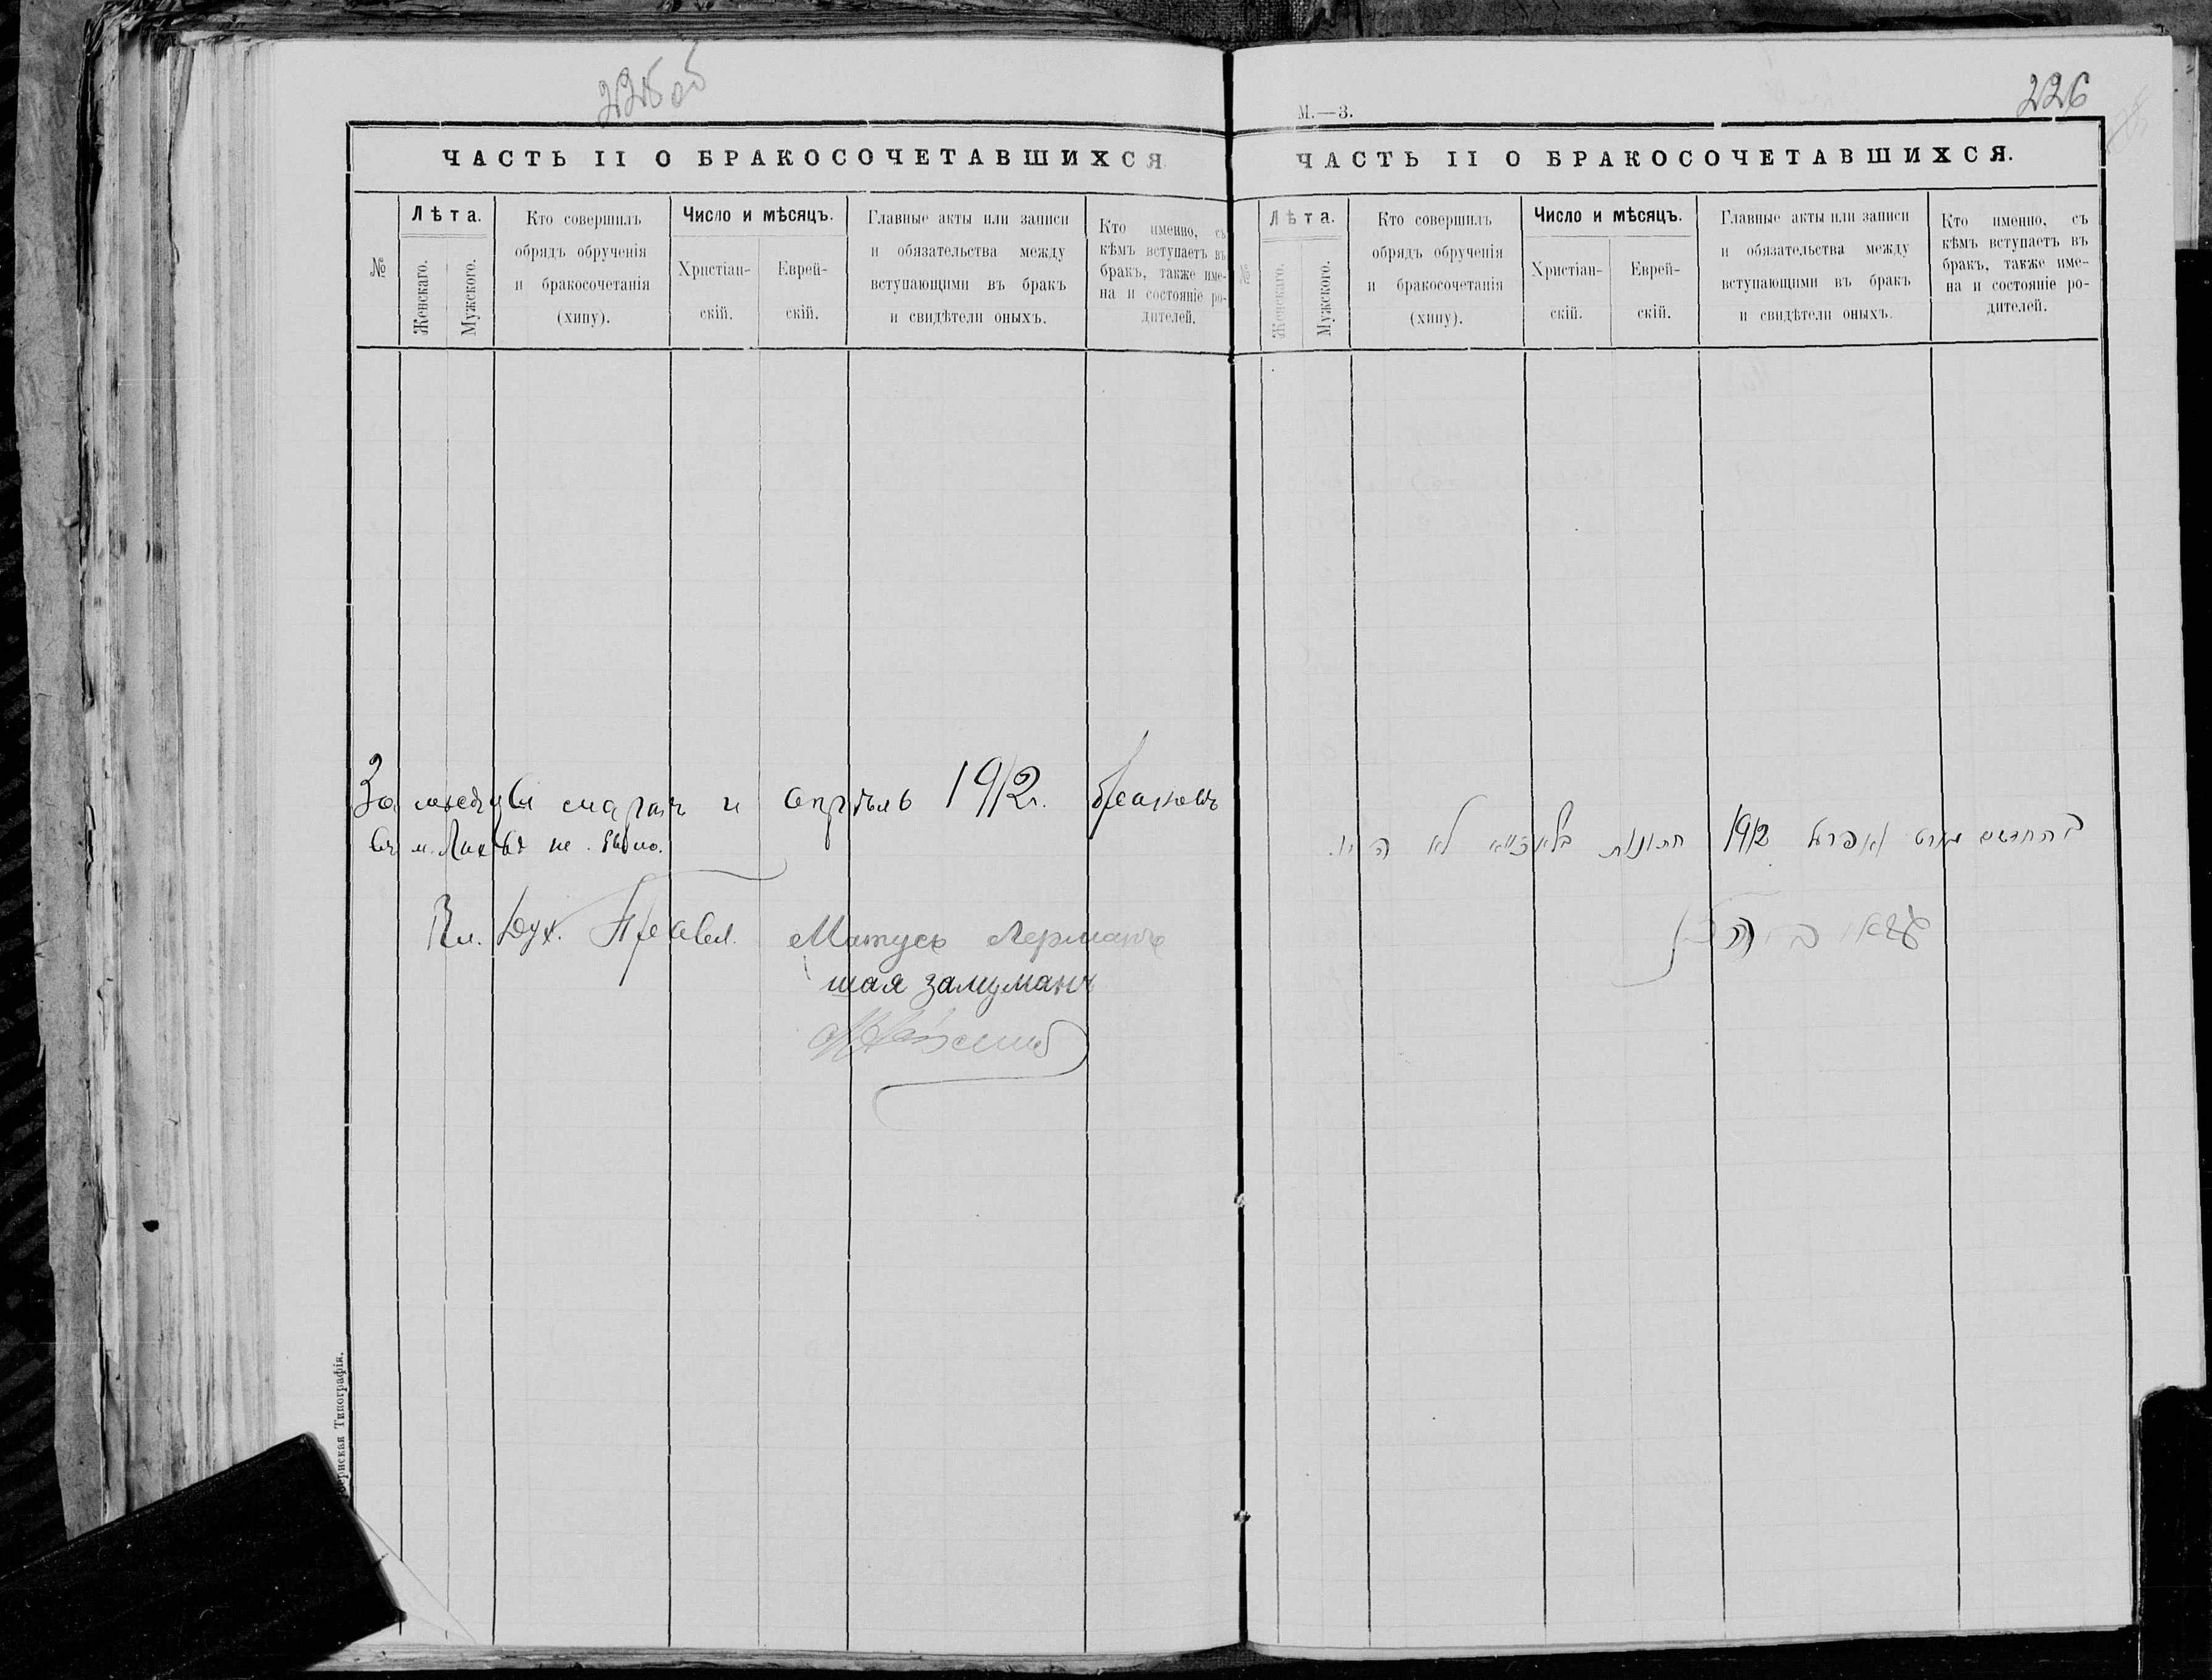 225 об
ЧАСТЬ II О БРАКОСОЧЕТАВШИХСЯ
№
Лѣта.
Женскаго.
Мужского.
Кто совершилъ
обрядъ обрученія
и бракосочетанія
(хипу).
Число и мѣсяцъ.
Христіан-
скій.
Еврей-
скій.
Главные акты или записи
и обязательства между
вступающими въ бракъ
и свидѣтели оныхъ.
Кто именно, съ
кѣмъ вступаетъ въ
бракъ, также име-
на и состояніе ро-
дителей.
За мѣсяцы мартъ и апрѣль 1912 г. браковъ
въ м. не было.
Дух. Правл. Матусъ Лерманъ
шая залцманъ
Типографія.
226
М.—3.
ЧАСТЬ II О БРАКОСОЧЕТАВШИХСЯ.
№
Лѣта.
Женскаго.
Мужского.
Кто совершилъ
обрядъ обрученія
и бракосочетанія
(хипу).
Число и мѣсяцъ.
Христіан-
скій.
Еврей-
скій.
Главные акты или записи
и обязательства между
вступающими въ бракъ
и свидѣтели оныхъ.
Кто именно, съ
кѣмъ вступаетъ въ
бракъ, также име-
на и состояніе ро-
дителей.
בהחדשים מארט ואפריל 1912 חתונות לא היו.